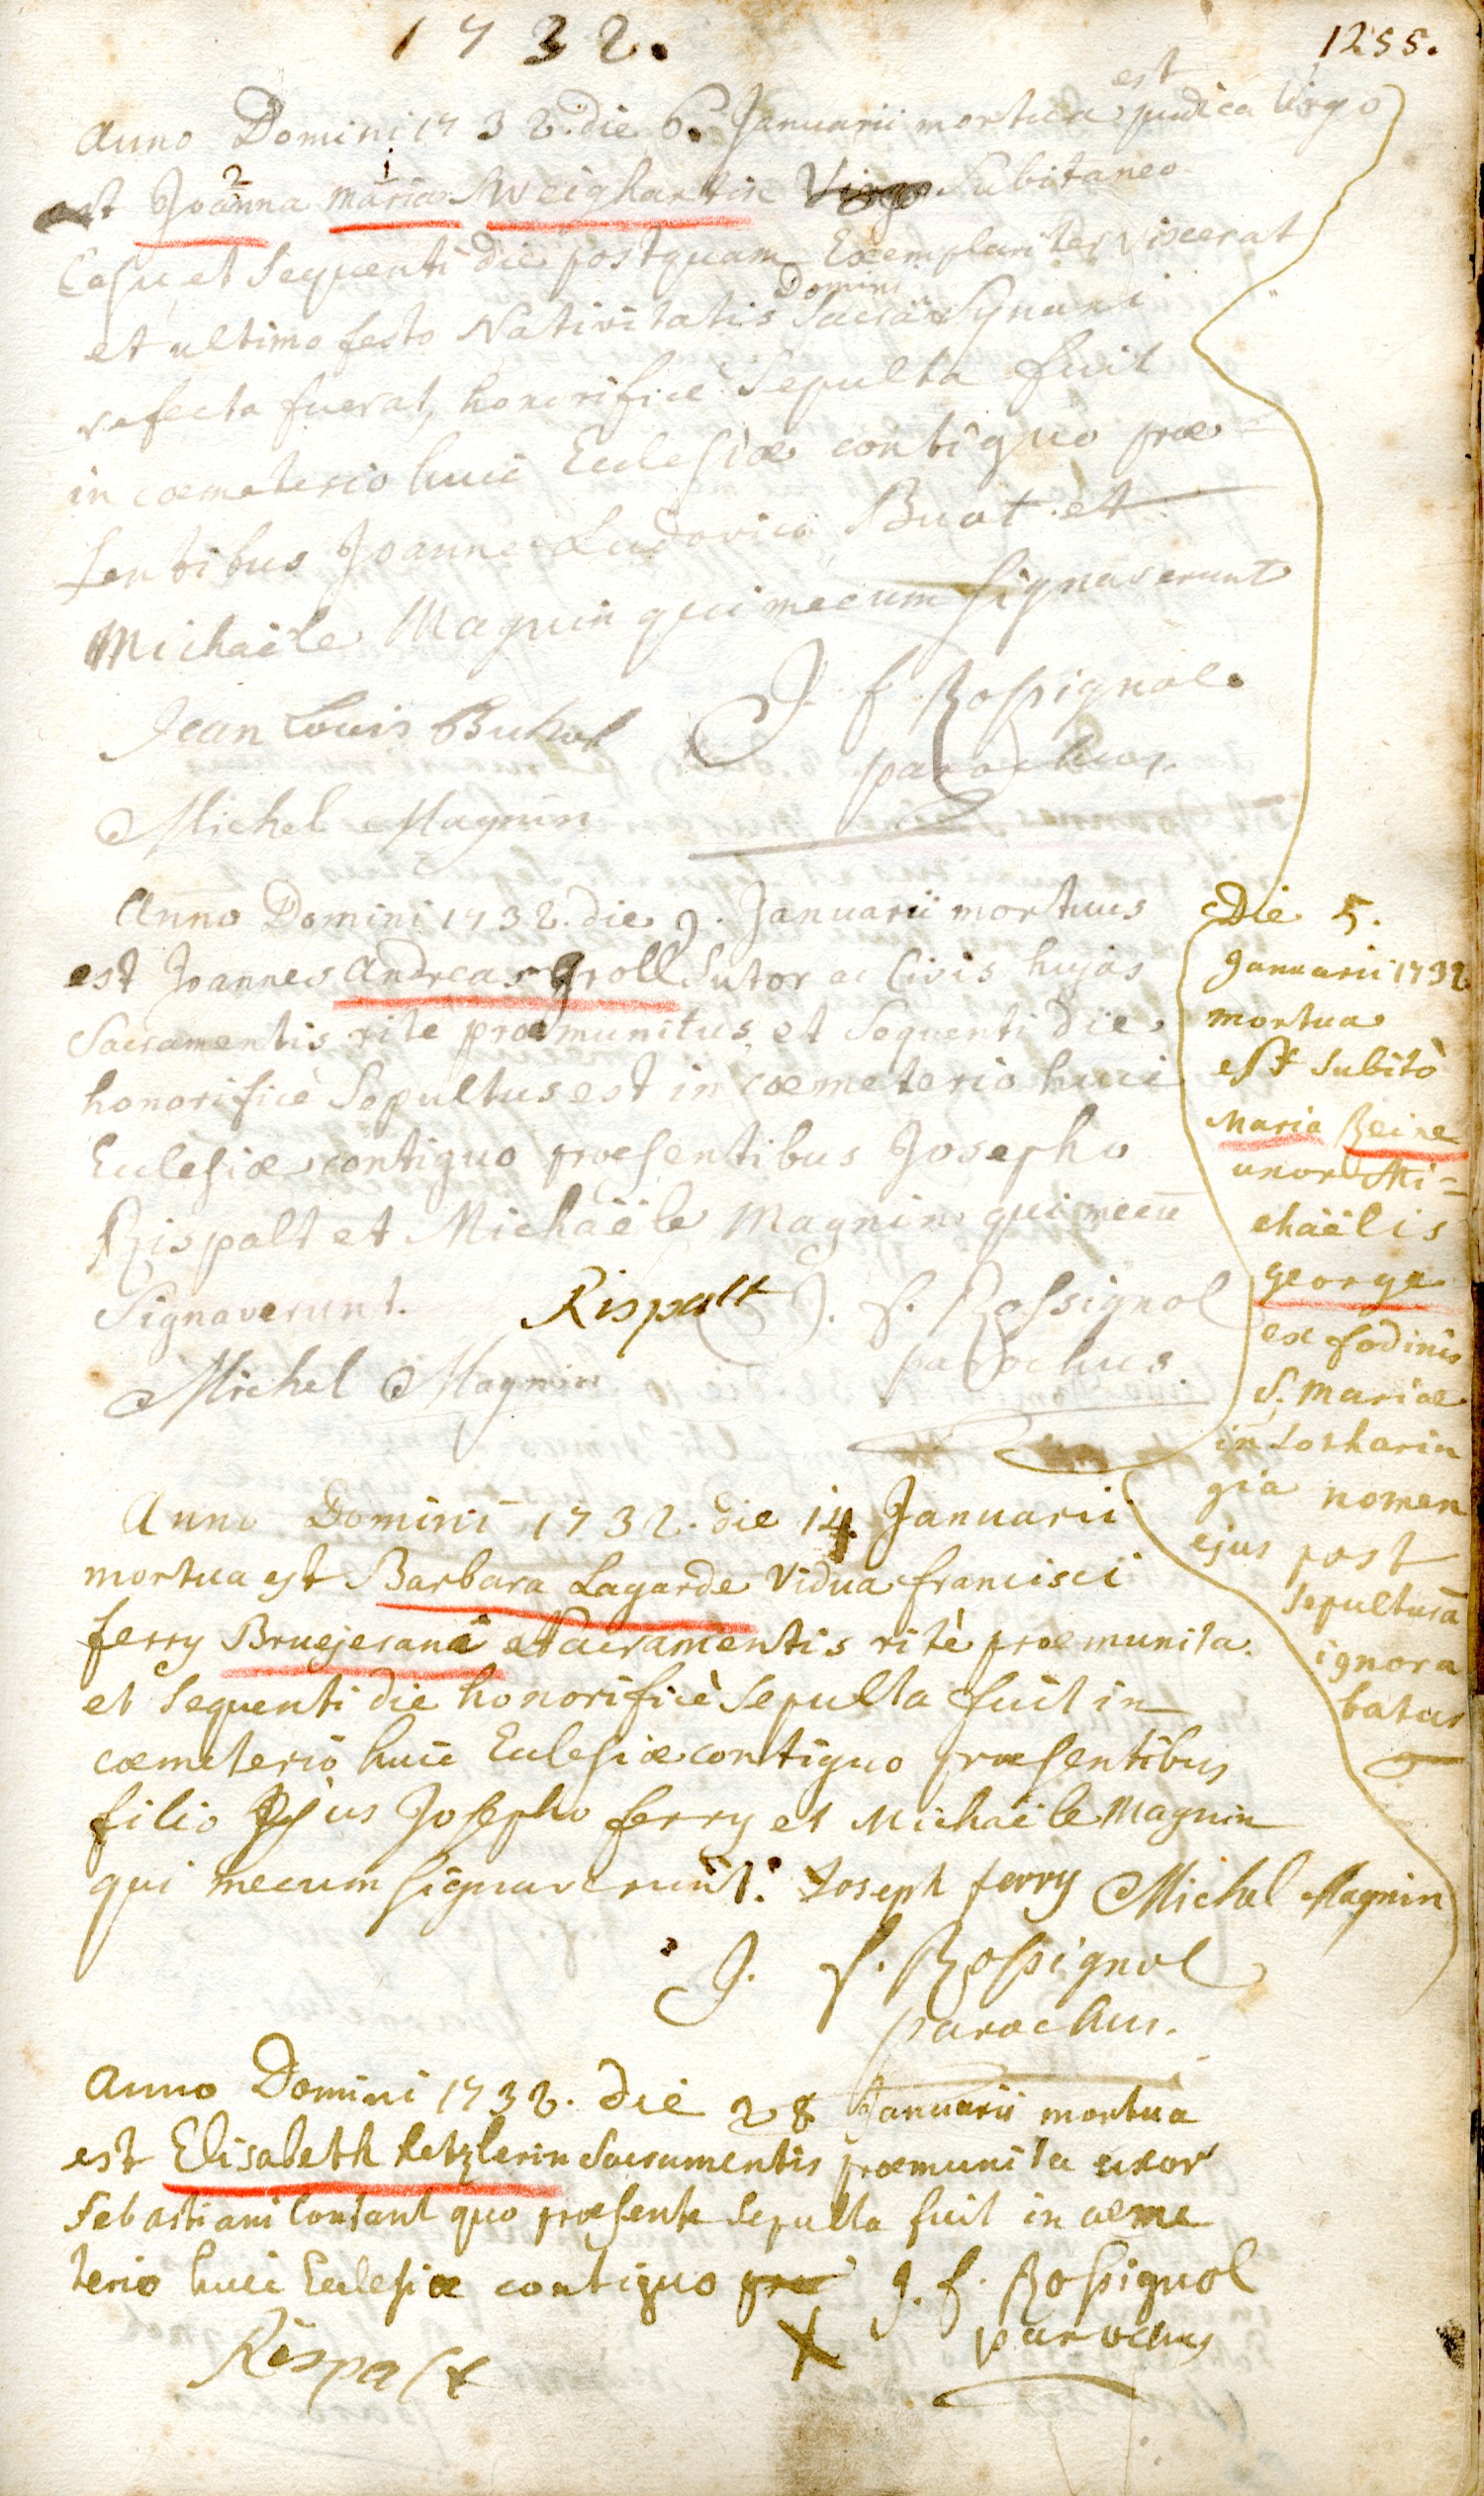 1732.
1255.
Anno Domini 1732. die 6. Januarii mortua est pudica Virgo
est Joanna 2 Maria 1 Sweighartin Virgo Subitaneo
Casu, et Sequenti die postquam Exemplariter vixerat
et ultimo festo Nativitatis Domini Sacra Synaxi
refecta fuerat, honorificè Sepulta fuit
in coemeterio huic Eclesiæ contiguo præ
sentibus Joanne Ludovico Buot et
Michaële Magnin qui mecum signaverunt
Jean Louis Buhot J. f. Rossignol
parochus.
Michel Magnin
Anno Domini 1732. die 9. Januarii mortuus
est Joannes Andreas Groll Sutor ac Civis hujas
Sacramentis rite præmunitus et Sequenti die
honorificè Sepultus est in coemeterio huic
Eclesiæ contiguo præsentibus Josepho
Rispalt et Michaële Magnin qui mecū
Signaverunt. Rispalt J. f. Rossignol
parochus.
Michel Magnin
Die 5.
Januarii 1732
mortua
est Subitò
Maria Reine
uxor Mi=
chaëlis
george
ex fodinis
S. Mariæ
in Lotharin
gia nomen
ejus post
Sepulturā
ignora
batur
Anno Domini 1732. die 14 Januarii
mortua est Barbara Lagarde Vidua francisci
ferry Bruejerana et Sacramentis ritè præmunita
et Sequenti die honorificè Sepulta fuit in
coemeterio huic Eclesiæ contiguo præsentibus
filio Ejus Josepho ferry et Michaële Magnin
qui mecum signaverunt. Joseph ferry Michel Magnin
J. f. Rossignol
parochus.
Anno Domini 1732. die 28 Januarii mortua
est Elisabeth Ketzlerin Sacramentis præmunita uxor
Sebastiani Contant quo præsente Sepulta fuit in coeme
terio huic Eclesiæ contiguo præ J. f. Rossignol
parochus
Rispalt X